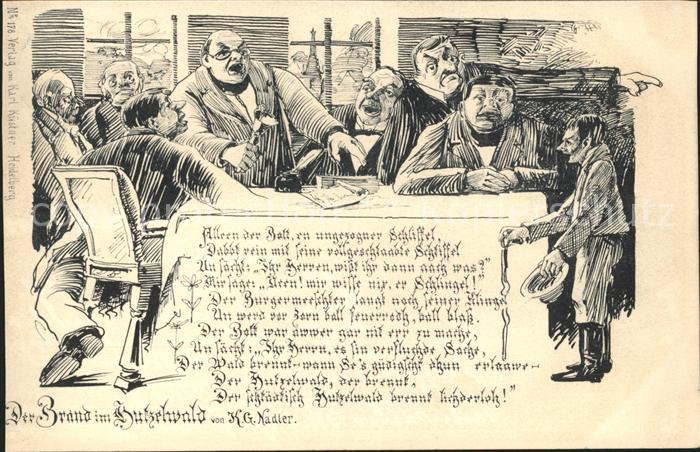 No 178. Verlag von Karl Küstner, Heidelberg.
Alleen der Bott, en ungezogner Schliffel,
Dabbt rein mit seine vollgeschlaabte Schliffel
Un sächt: „Ihr Herren, wißt ihr dann aach was?“
Mir sage: „Neen! mir wisse nix, er Schlingel!“
Der Burgermeeschter langt noch seiner Klingel
Un werd vor Zorn ball feuerroth, ball blaß.
Der Bott war awwer gar nit err zu mache,
Un sächt: „Ihr Herrn, es sin verfluchde Sache,
Der Wald brennt – wann Se's güdigscht dhun erlaawe –
Der Hutzelwald, der brennt,
Der schtädtisch Hutzelwald brennt lichderloh!“
Der Brand im Hutzelwald von K. G. Nadler.